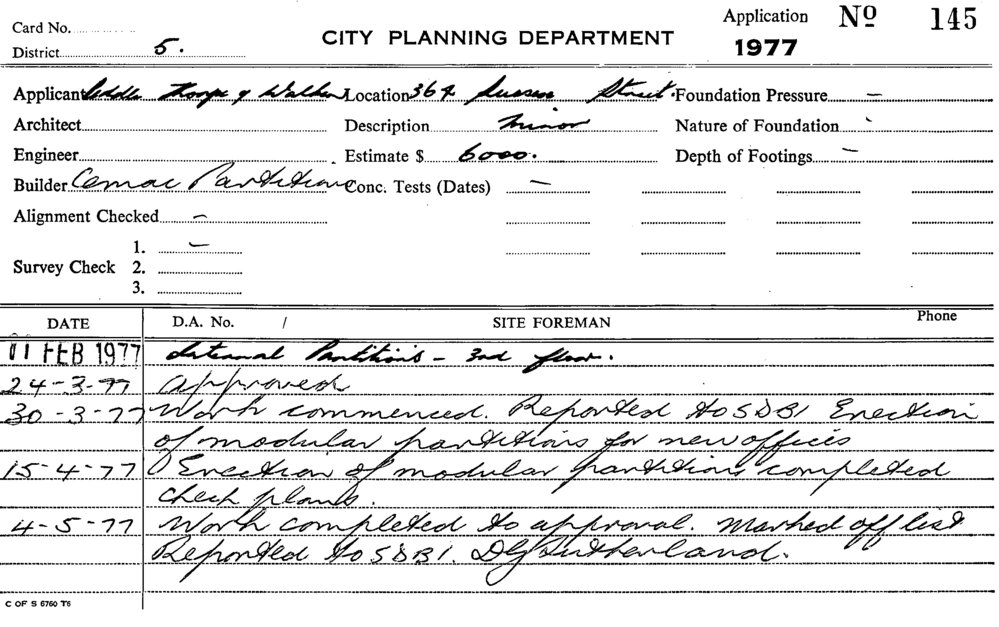 Card No.
District 5.
CITY PLANNING DEPARTMENT
Application Nº 145
1977
Applicant Peddle Thorp & Walker Location 364 Sussex Street. Foundation Pressure —
Architect Description Minor Nature of Foundation
Engineer Estimate $ 6000. Depth of Footings —
Builder Cemac Partitions Conc. Tests (Dates) —
Alignment Checked —
Survey Check 1. —
2.
3.
DATE D.A. No. / SITE FOREMAN Phone
01 FEB 1977 Internal Partitions - 3rd floor.
24-3-77 Approved
30-3-77 Work commenced. Reported to SDBI Erection
of modular partitions for new offices
15-4-77 Erection of modular partitions completed
check plans.
4-5-77 Work completed to approval. Marked off list
Reported to SDBI. Sutherland.
C OF S 6760 T6